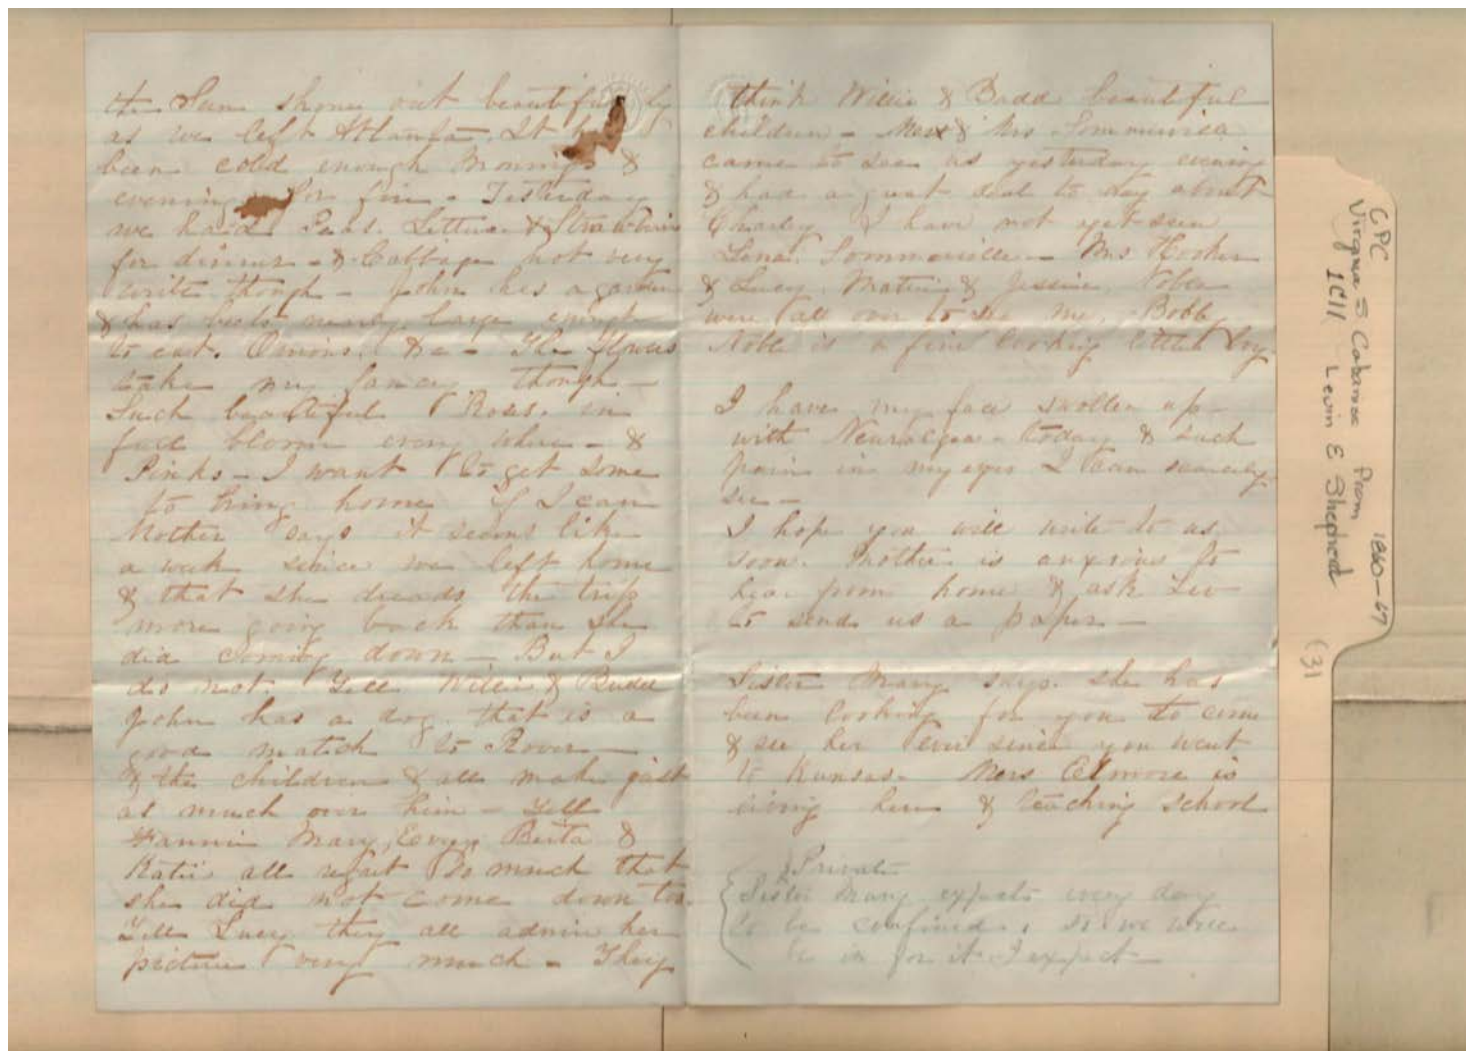 the Sun shone out beautifully
as we left Atlanta. It h
been cold enough Mornings &
evening for fire - Yesterday
we had Peas. Lettuce & Strawberries
for dinner - & Cabbage not very
white though - John has a garden
& has beets nearly large enough
to eat. Onions. &c - The flowers
take my fancy though -
Such beautiful Roses. in
full bloom every where - &
Pinks - I want to get some
to bring home if I can
Mother says it seems like
a week since we left home
& that she dreads the trip
more going back than she
did coming down - But I
do not. Tell Willie & Budd
John has a dog. that is a
good match to Rover -
& the children & all make just
as much over him - Tell
Fannie Mary, Berta &
Katie all regret so much that
she did not come down too.
Tell Lucy they all admire her
picture very much - They
think Willie & Budd beautiful
children - & Mrs Sommerville
came to see us yesterday evening
& had a great deal to say about
Charley I have not yet seen
Lena. Sommerville - Mrs Hooker
& Lucy. Mattie & Jessie, Noble
were all over to see me. Bobb
Noble is a fine looking little boy
I have my face swollen up -
with Neuralgia - today & such
pain in my eyes I can scarcely
see -
I hope you will write to us
soon. Mother is anxious to
hear from home & ask Lew
to send us a paper -
Sister Mary says. she has
been looking for you to come
& see her ever since you went
to Kansas. Mrs Elmore is
living here & teaching school
Private
Sister Mary expects every day
to be confined. so we will
be in for it I expect -
CPC
Virginia S Cabaniss From 1860-67
to Lewin E Shepherd
(3)